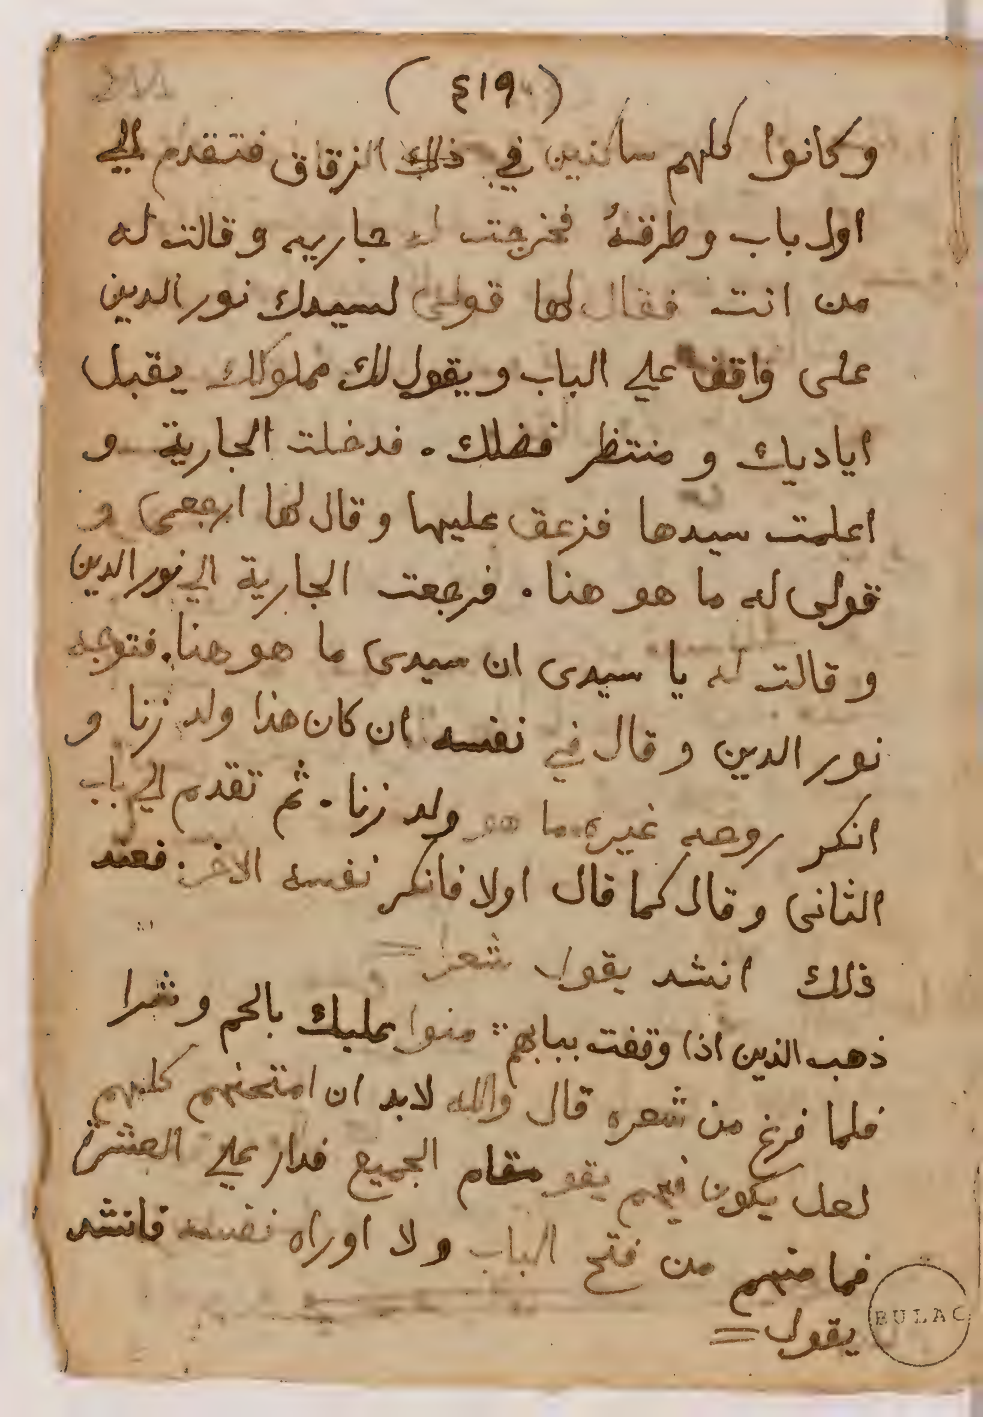 (٤١٩)
وكانوا كلهم ساكنين في ذلك الزقاق فتقدم الي
اول باب وطرقهُ فخرجت له جاريه وقالت له
من انت فقال لها قولى لسيدك نور الدين
على واقف علي الباب ويقول لك مملوكك يقبل
اياديك ومنتظر فضلك. فدخلت الجارية و
اعلمت سيدها فزعق عليها وقال لها ارجعى و
قولى له ما هو هنا. فرجعت الجارية الي نور الدين
وقالت له يا سيدى ان سيدى ما هو هنا. فتوجه
نور الدين وقال في نفسه ان كان هذا ولد زنا و
انكر روحه غيره ما هو ولد زنا. ثم تقدم الي باب
الثانى وقال كما قال اولا فانكر نفسه الاخر. فعند
ذلك انشد يقول شعرا =
ذهب الذين اذا وقفت ببابهم منوا عليك بالحم وشرا
فلما فرغ من شعره قال والله لابد ان امتحنهم كلهم
لعل يكون فيهم يقو مقام الجميع فدار علي العشرة
فما منهم من فتح الباب ولا اوراه نفسه فانشد
يقول =
BULAC